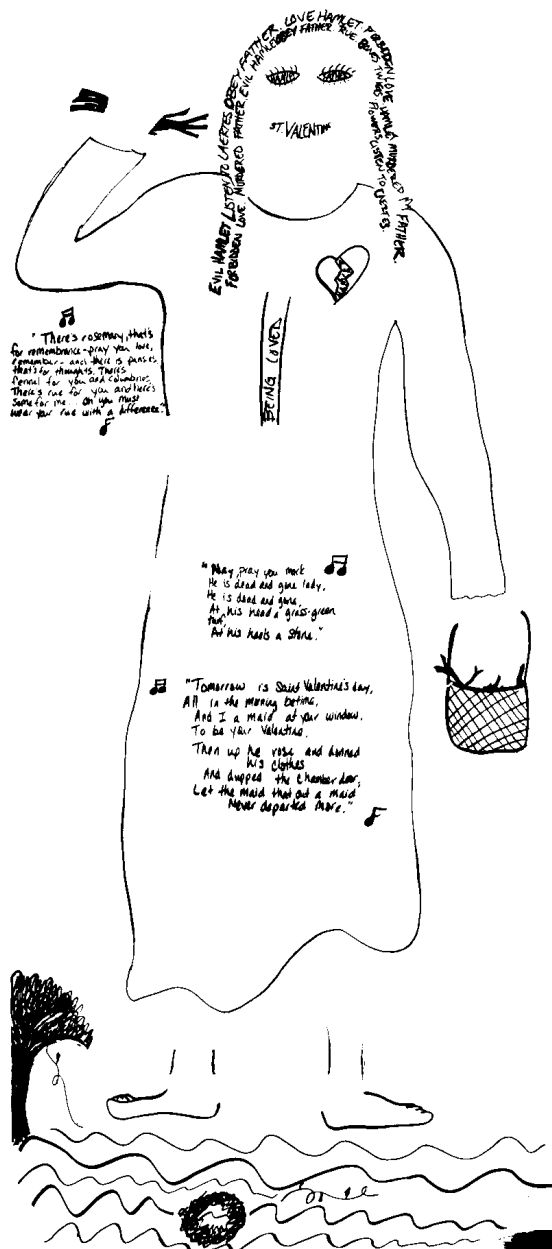 EVIL HAMLET LISTEN TO LAERTES OBEY FATHER. LOVE HAMLET. FORBIDDEN LOVE HAMLET MURDERED MY FATHER.
FORBIDDEN LOVE. MURDERED FATHER. EVIL HAMLET OBEY FATHER. TRUE LOVES THINGS. FLOWERS LISTEN TO
ST. VALENTINE
BEING LOVED
"There's rosemary, that's
for remembrance - pray you love,
remember - and there is pansies
that's for thoughts. There's
fennel for you and columbines
There's rue for you and here's
some for me... oh you must
wear your rue with a difference."
"Nay, pray you mark
He is dead and gone lady,
He is dead and gone,
At his head a grass-green
turf,
At his heels a stone."
"Tomorrow is Saint Valentine's day,
All in the morning betime,
And I a maid at your window,
To be your Valentine.
Then up he rose and donned
his clothes
And dupped the chamber door,
Let the maid that out a maid
Never departed more."